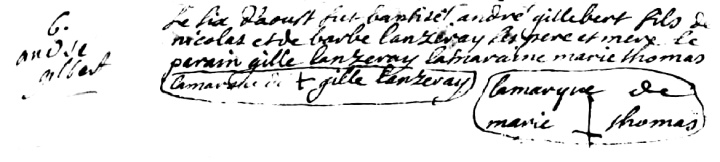 6.
andre
gilbert
Le six daoust fut baptisé andré gillebert fils de
nicolas et de barbe lanzeray ses pere et mere le
parain gille lanzeray la maraine marie thomas
la marque de + gille lanzeray
la marque de
marie + thomas